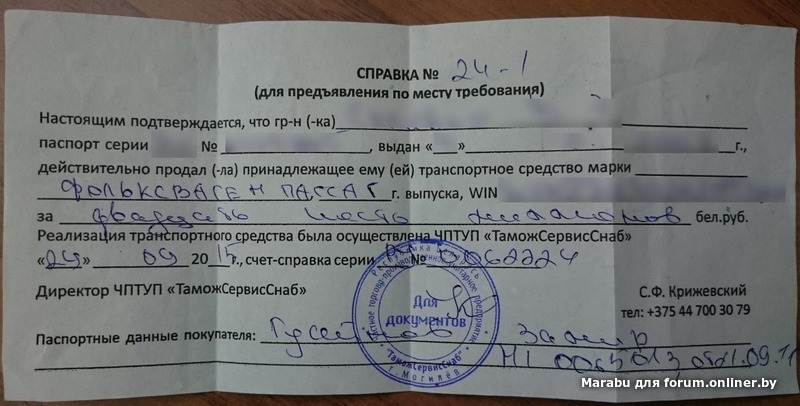 СПРАВКА № 24-1
(для предъявления по месту требования)
Настоящим подтверждается, что гр-н (-ка)
паспорт серии № , выдан «__» г.,
действительно продал (-ла) принадлежащее ему (ей) транспортное средство марки
ФОЛЬКСВАГЕН ПАССАТ г. выпуска, WIN
за двадцать шесть миллионов бел.руб.
Реализация транспортного средства была осуществлена ЧПТУП «ТаможСервисСнаб»
«29» 09 2015 г., счет-справка серии № 0062224
Директор ЧПТУП «ТаможСервисСнаб»
С.Ф. Крижевский
тел: +375 44 700 30 79
Для документов
"ТаможСервисСнаб"
г. Могилёв
Паспортные данные покупателя:
Marabu для forum.onliner.by